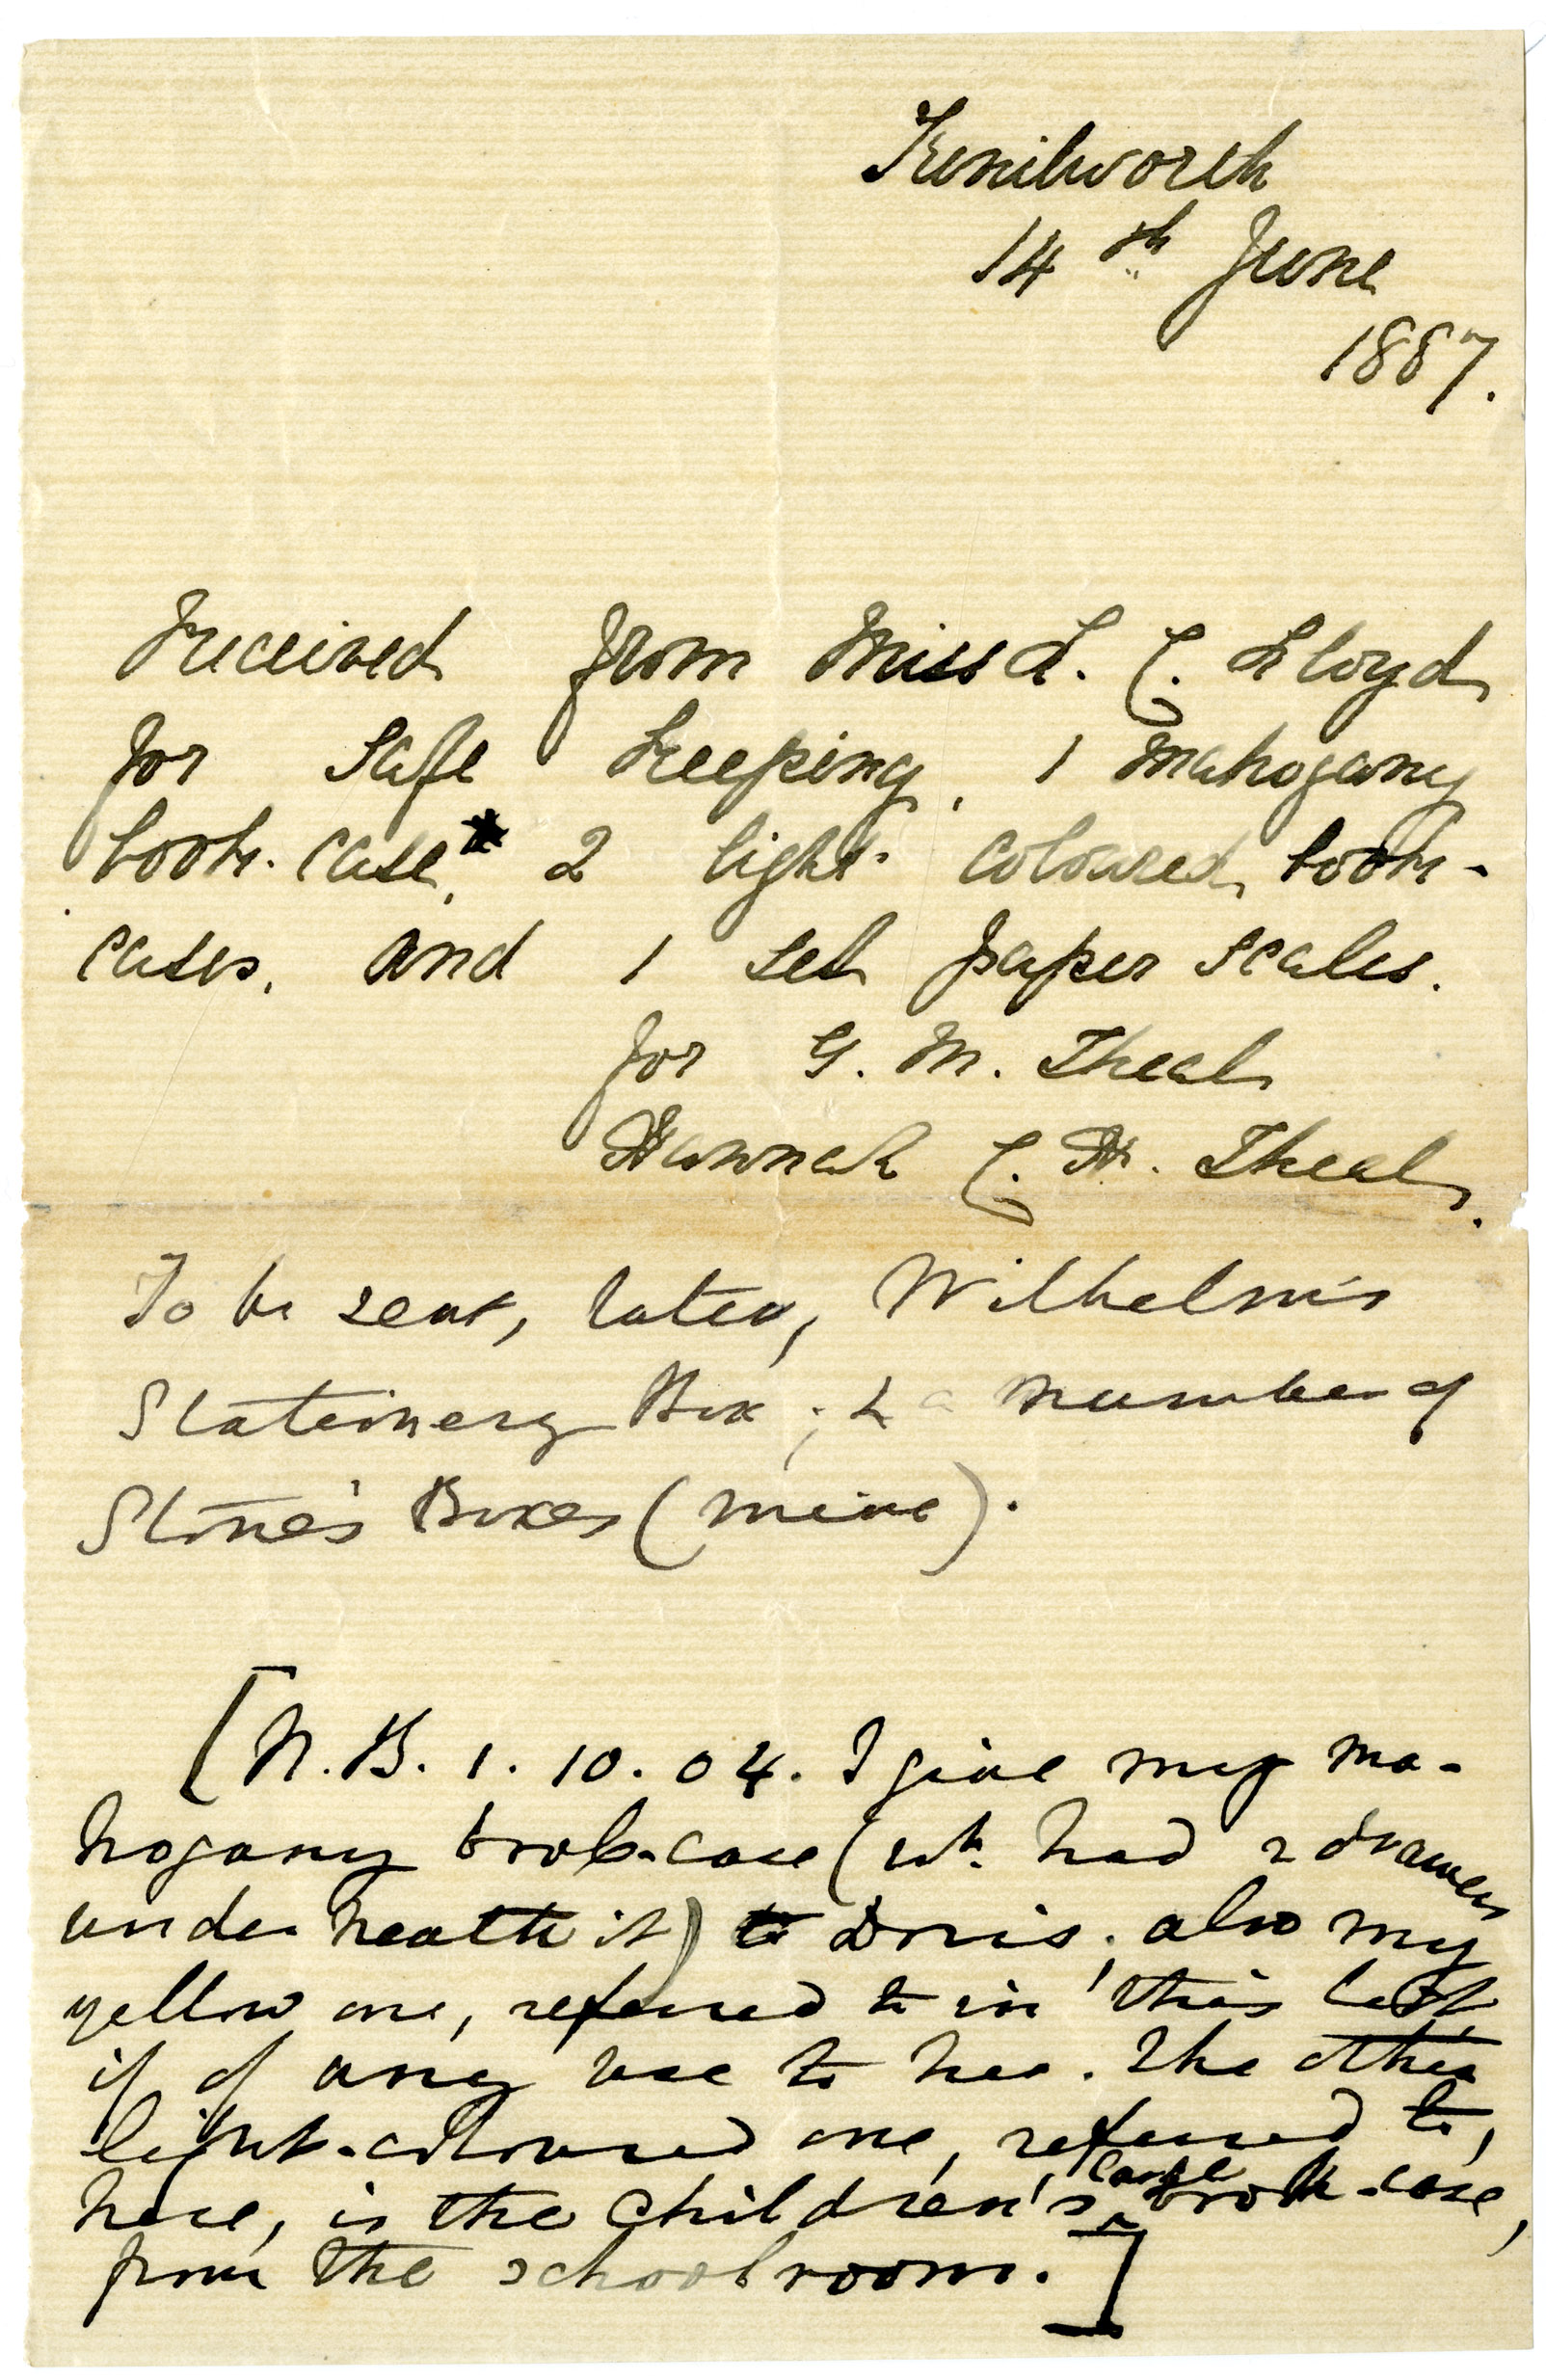 Kenilworth
14th June
1887.
Received from Miss L. C. Lloyd
for safe keeping, 1 mahogany
book-case,* 2 light-coloured book-
cases, and 1 set paper scales.
for G. M. Theal
Hannah C. H. Theal.
To be sent, later, Wilhelm's
Stationery Box; & a number of
Stone's Boxes (mine).
[N.B. 1.10.04. I give my ma-
hogany book-case (wh. had 2 drawers
underneath it) to Doris; also my
yellow one, referred to in this list,
if of any use to her. The other
light-coloured one, referred to,
here, is the children's large book-case,
from the schoolroom.]